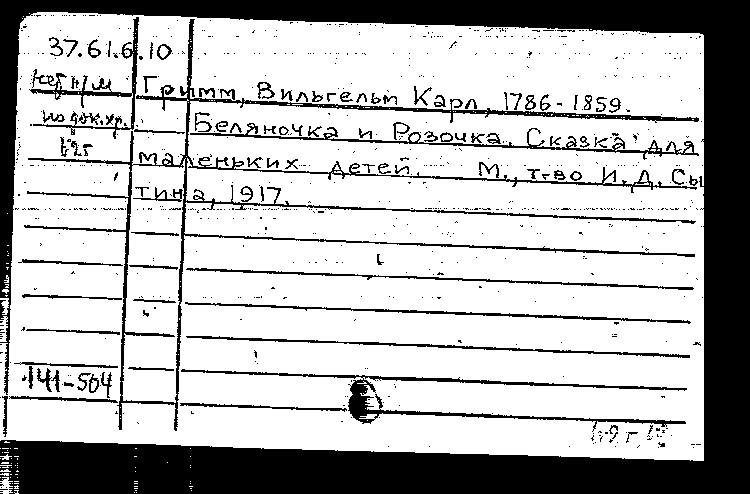 37.61.6.10
Гримм, Вильгельм Карл, 1786-1859.
Беляночка и Розочка. Сказка для
маленьких детей. М., т-во И. Д. Сы
тина, 1917.
141-504